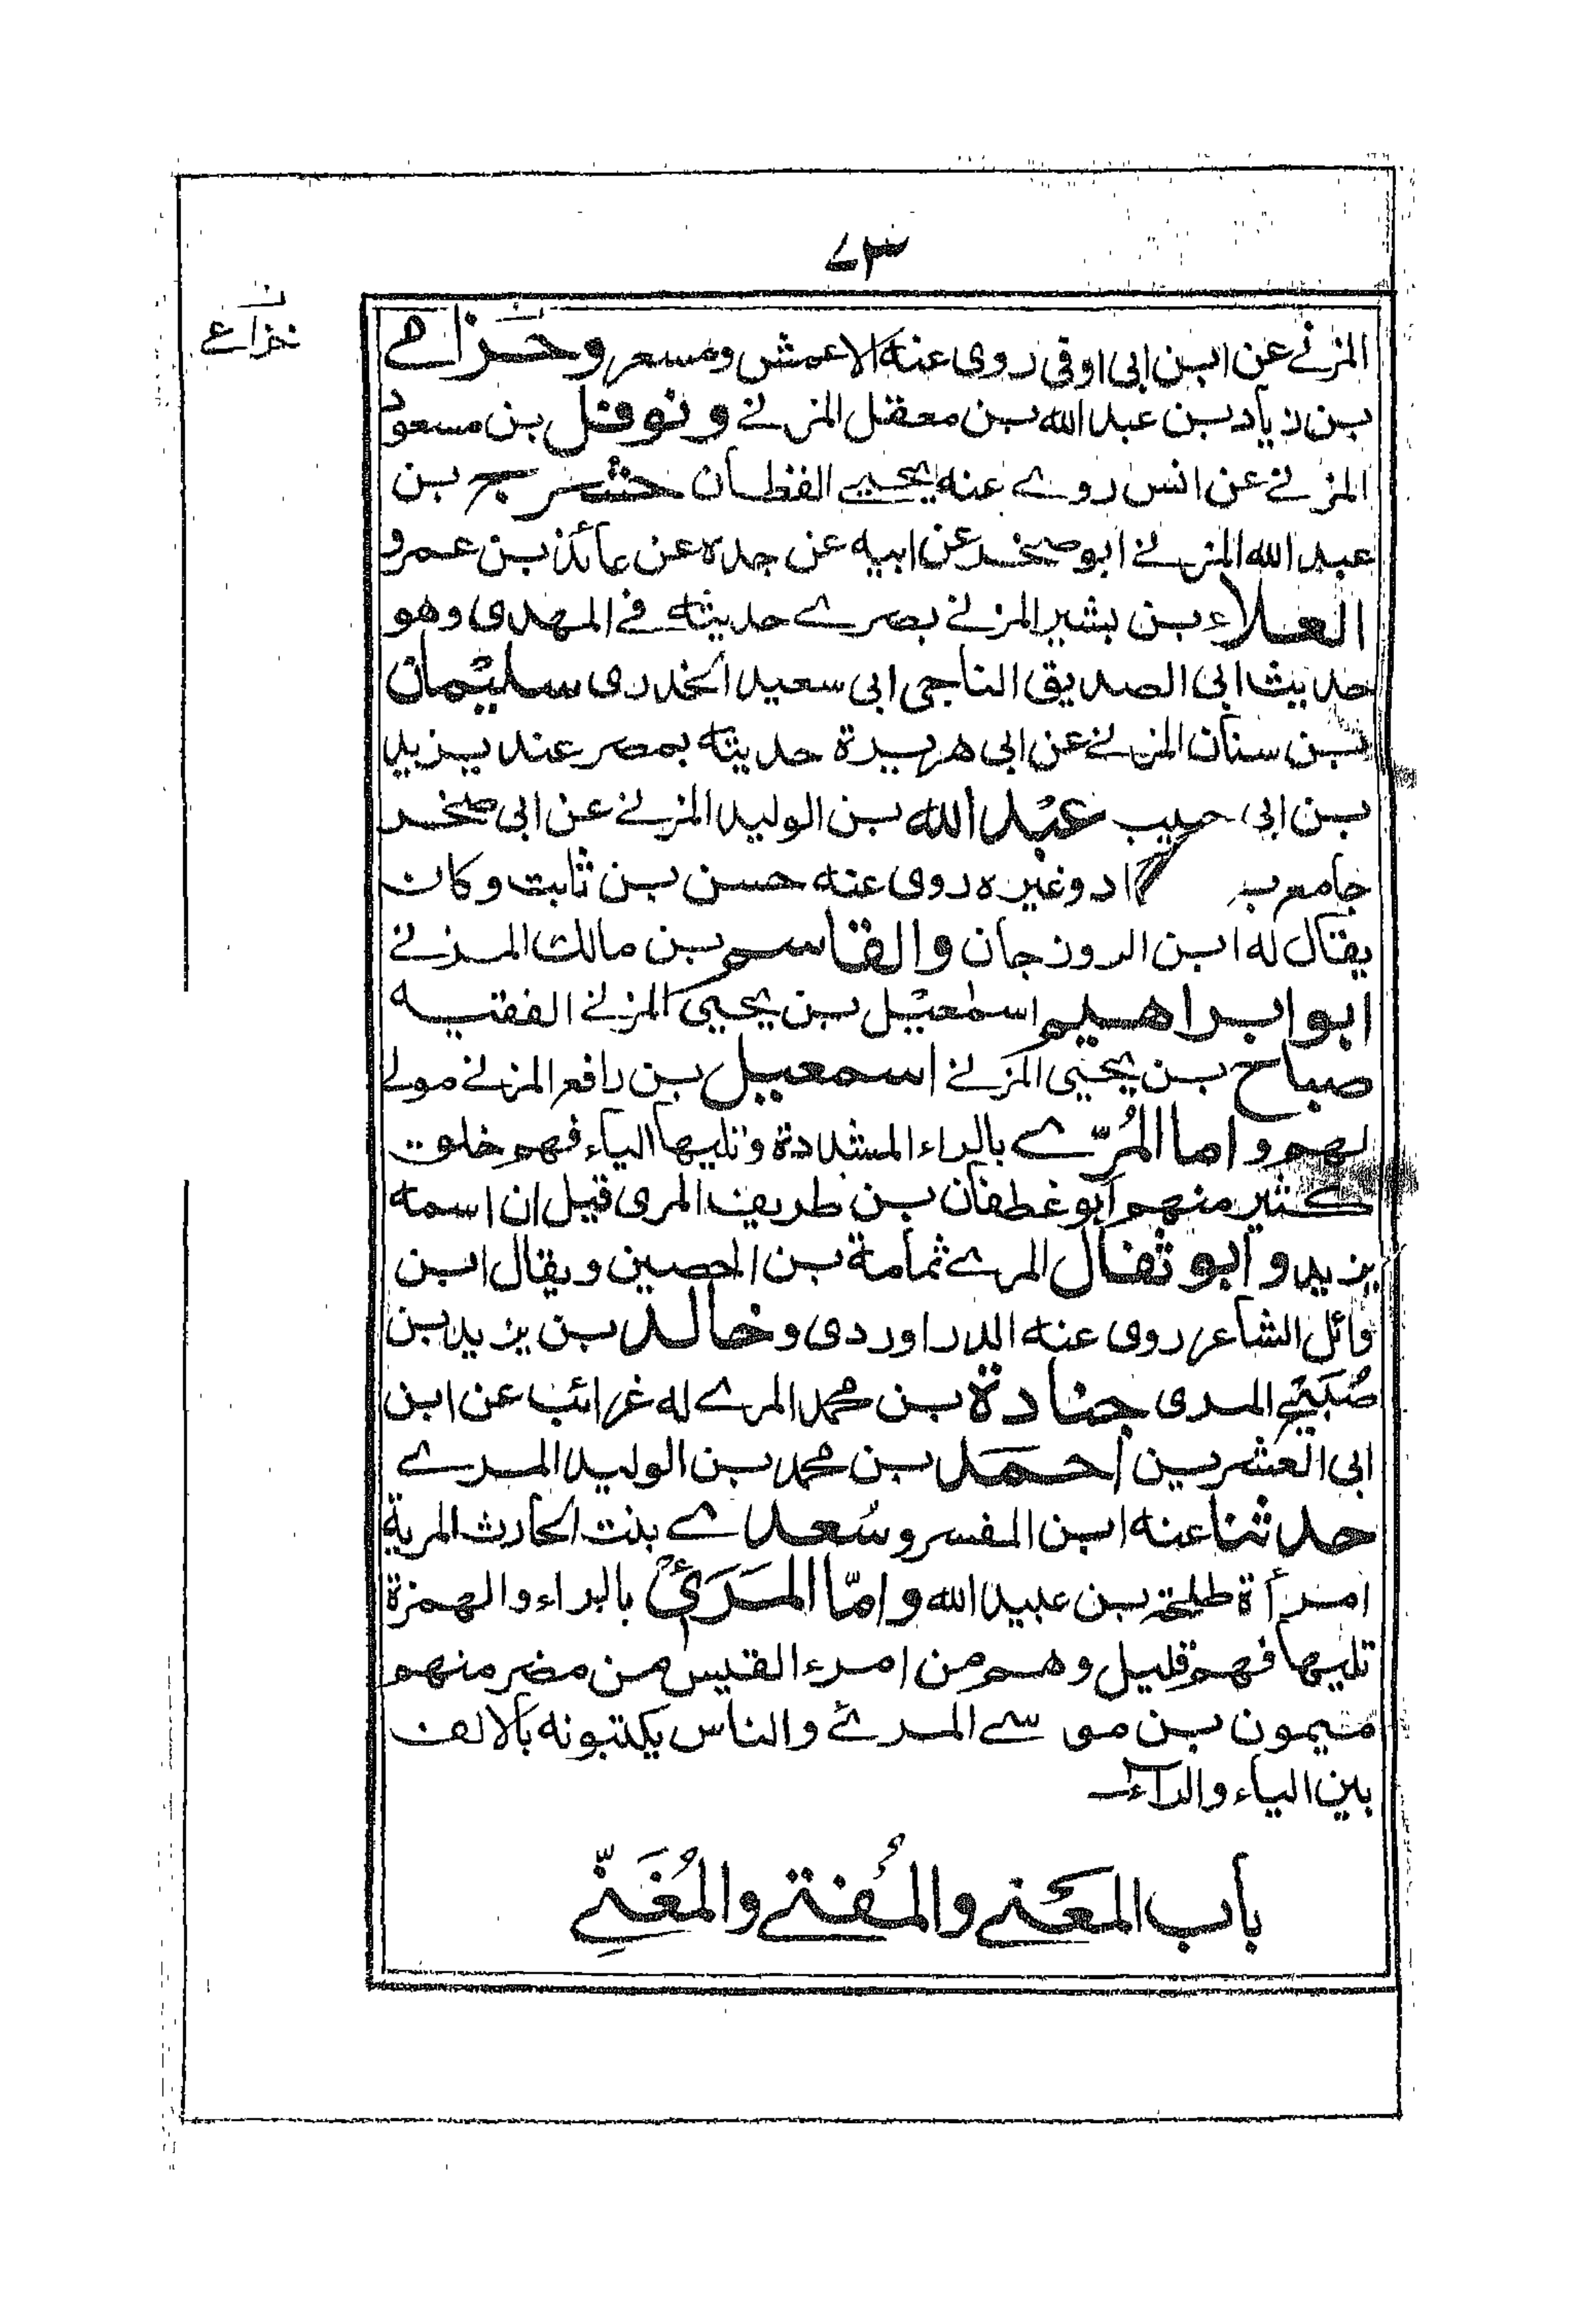 ٧٣
ن
خزاعي
المزني عن ابن ابي اوفى روى عنه الاعمش ومسعر وخزاعي
بن زياد بن عبد الله بن معقل المزني ونوفل بن مسعود
المزني عن انس روى عنه يحيى القطان حشرج بن
عبد الله المزني ابو صخر عن ابيه عن جده عن عائذ بن عمرو
العلاء بن بشير المزني بصري حديثه في المهدي وهو
حديث ابي الصديق الناجي ابي سعيد الخدري سليمان
بن سنان المزني عن ابي هريرة حديثه بمصر عند يزيد
بن ابي حبيب عبد الله بن الوليد المزني عن ابي صخر
جامع بن اد وغيره روى عنه حسن بن ثابت وكان
يقال له ابن الروزجان والقاسم بن مالك المزني
ابو ابراهيم اسمٰعيل بن يحيى المزني الفقيه
صباح بن يحيى المزني اسمعيل بن رافع المزني مولى
لهم واما المُرّي بالراء المشددة وتليها الياء فهم خلق
كثير منهم ابو غطفان بن طريف المري قيل ان اسمه
يزيد وابو ثفال المري ثمامة بن الحصين ويقال ابن
وائل الشاعر روى عنه الدراوردي وخالد بن يزيد بن
صُبَيْح المري جنادة بن محمد المري له غرائب عن ابن
ابي العشرين احمد بن محمد بن الوليد المري
حدثنا عنه ابن المفسر وسُعدى بنت الحارث المرية
امرأة طلحة بن عبيد الله وامّا المَرَئيُّ بالراء والهمزة
تليها فهم قليل وهم من امرء القيس من مضر منهم
ميمون بن موسى المرئي والناس يكتبونه بالالف
بين الياء والراء
باب المَعْنِي والمُفتي والمُغَنِّي